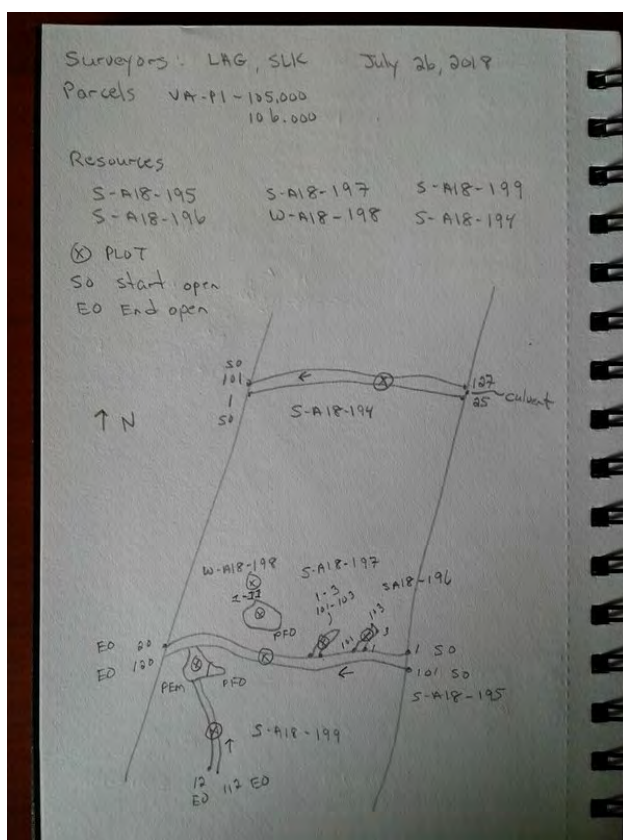 Surveyors: LAG, SLK July 26, 2019
Parcels VA-PI-105.000
106.000
Resources
S-A18-195 S-A18-197 S-A18-199
S-A18-196 W-A18-198 S-A18-194
ⓧ PLOT
SO start open
EO End open
SO
101
1
SO
127
25 culvert
↑ N
S-A18-194
W-A18-198
S-A18-197
SA18-196
1-3
101-103
PFO
EO 20
EO 120
101
1
103
3
1 SO
101 SO
S-A18-195
PEM
PFO
S-A18-199
12
EO
112 EO